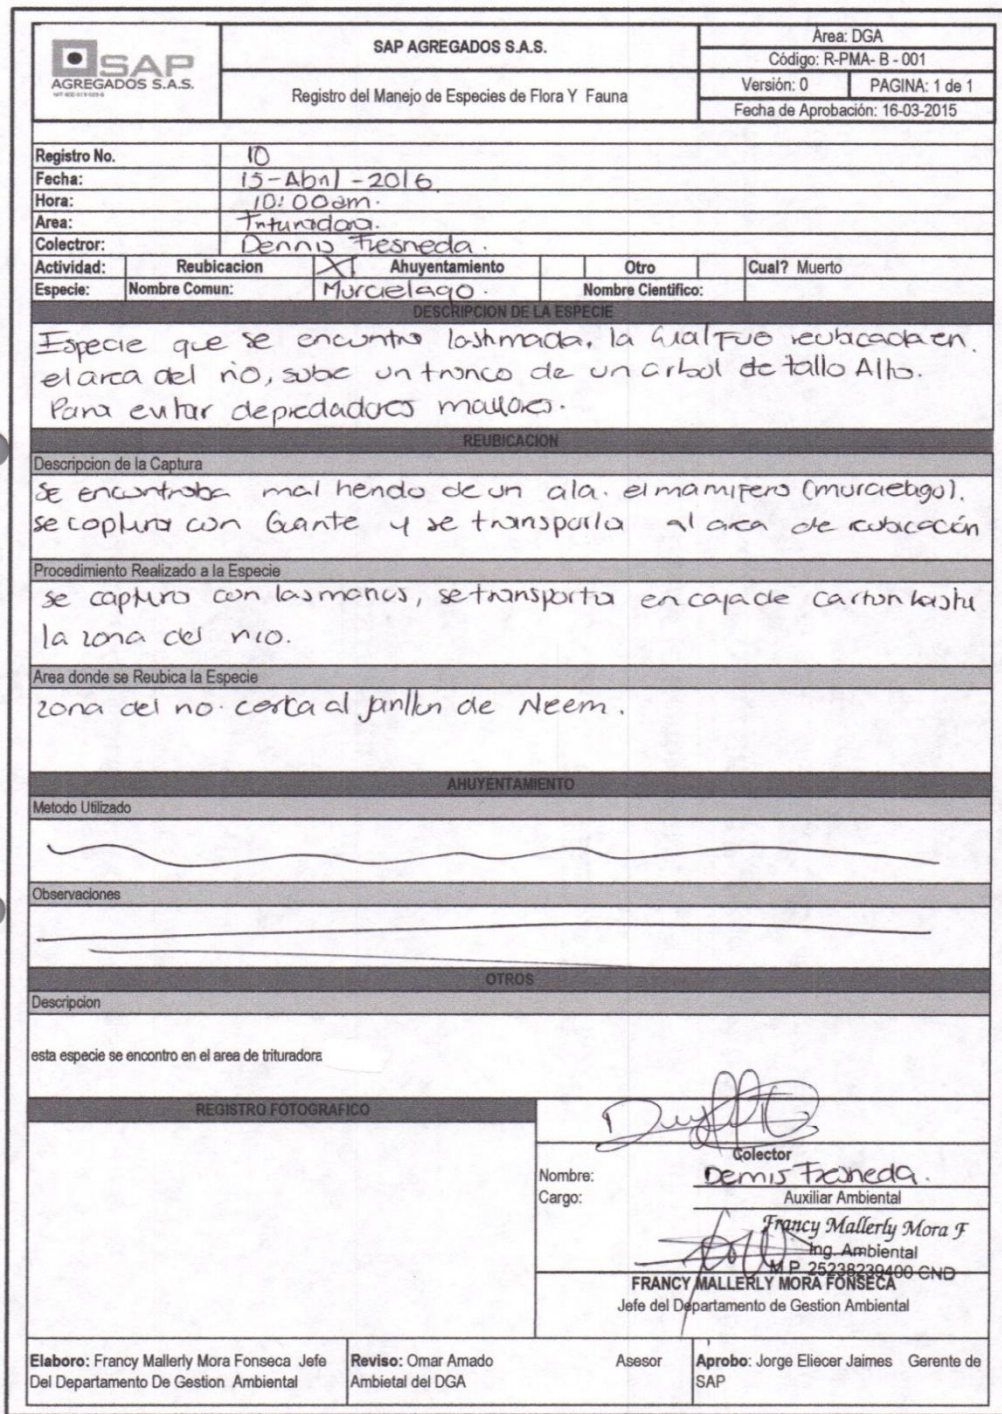 SAP
AGREGADOS S.A.S.
SAP AGREGADOS S.A.S.
Registro del Manejo de Especies de Flora Y Fauna
Área: DGA
Código: R-PMA- B - 001
Versión: 0 PAGINA: 1 de 1
Fecha de Aprobación: 16-03-2015
Registro No. 10
Fecha: 15-Abril-2016
Hora: 10:00am.
Area: Trituradora.
Colectror: Dennis Fresneda.
Actividad: Reubicacion X Ahuyentamiento Otro Cual? Muerto
Especie: Nombre Comun: Murcielago. Nombre Cientifico:
DESCRIPCION DE LA ESPECIE
Especie que se encontro lastimada, la cual Fue reubicada en
el area del rio, sobe un tronco de un arbol de tallo Alto.
Para evitar depredadores mallores.
REUBICACION
Descripcion de la Captura
se encontraba mal herido de un ala. el mamifero (murcielago).
se captura con Guante y se transporta al area de rubicación
Procedimiento Realizado a la Especie
se capturo con las manos, se transporta en caja de carton hasta
la zona del rio.
Area donde se Reubica la Especie
zona del rio. cerca al de Neem.
AHUYENTAMIENTO
Metodo Utilizado
Observaciones
OTROS
Descripcion
esta especie se encontro en el area de trituradora
REGISTRO FOTOGRAFICO
Colector
Nombre: Dennis Fresneda.
Cargo: Auxiliar Ambiental
Francy Mallerly Mora F
Ing. Ambiental
M.P. 25238239400 CND
FRANCY MALLERLY MORA FONSECA
Jefe del Departamento de Gestion Ambiental
Elaboro: Francy Mallerly Mora Fonseca Jefe
Del Departamento De Gestion Ambiental
Reviso: Omar Amado Asesor
Ambietal del DGA
Aprobo: Jorge Eliecer Jaimes Gerente de
SAP